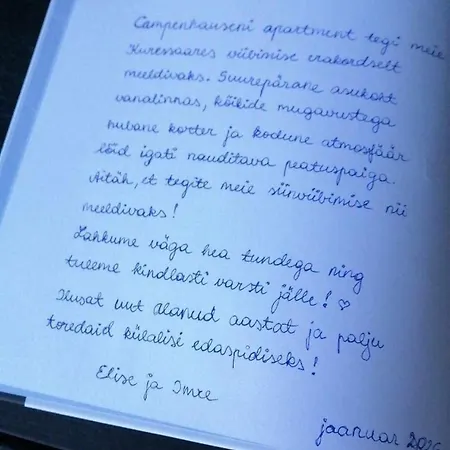 Campenhauseni apartment tegi meie
Kuressaares viibimise erakordselt
meeldivaks. Suurepärane asukoht
vanalinnas, kõikide mugavustega
hubane korter ja kodune atmosfäär
lõid igati nauditava peatuspaiga.
Aitäh, et tegite meie siinviibimise nii
meeldivaks!
Lahkume väga hea tundega ning
tuleme kindlasti varsti jälle! ♡
Ilusat uut alanud aastat ja palju
toredaid külalisi edaspidiseks!
Elise ja Imre
jaanuar